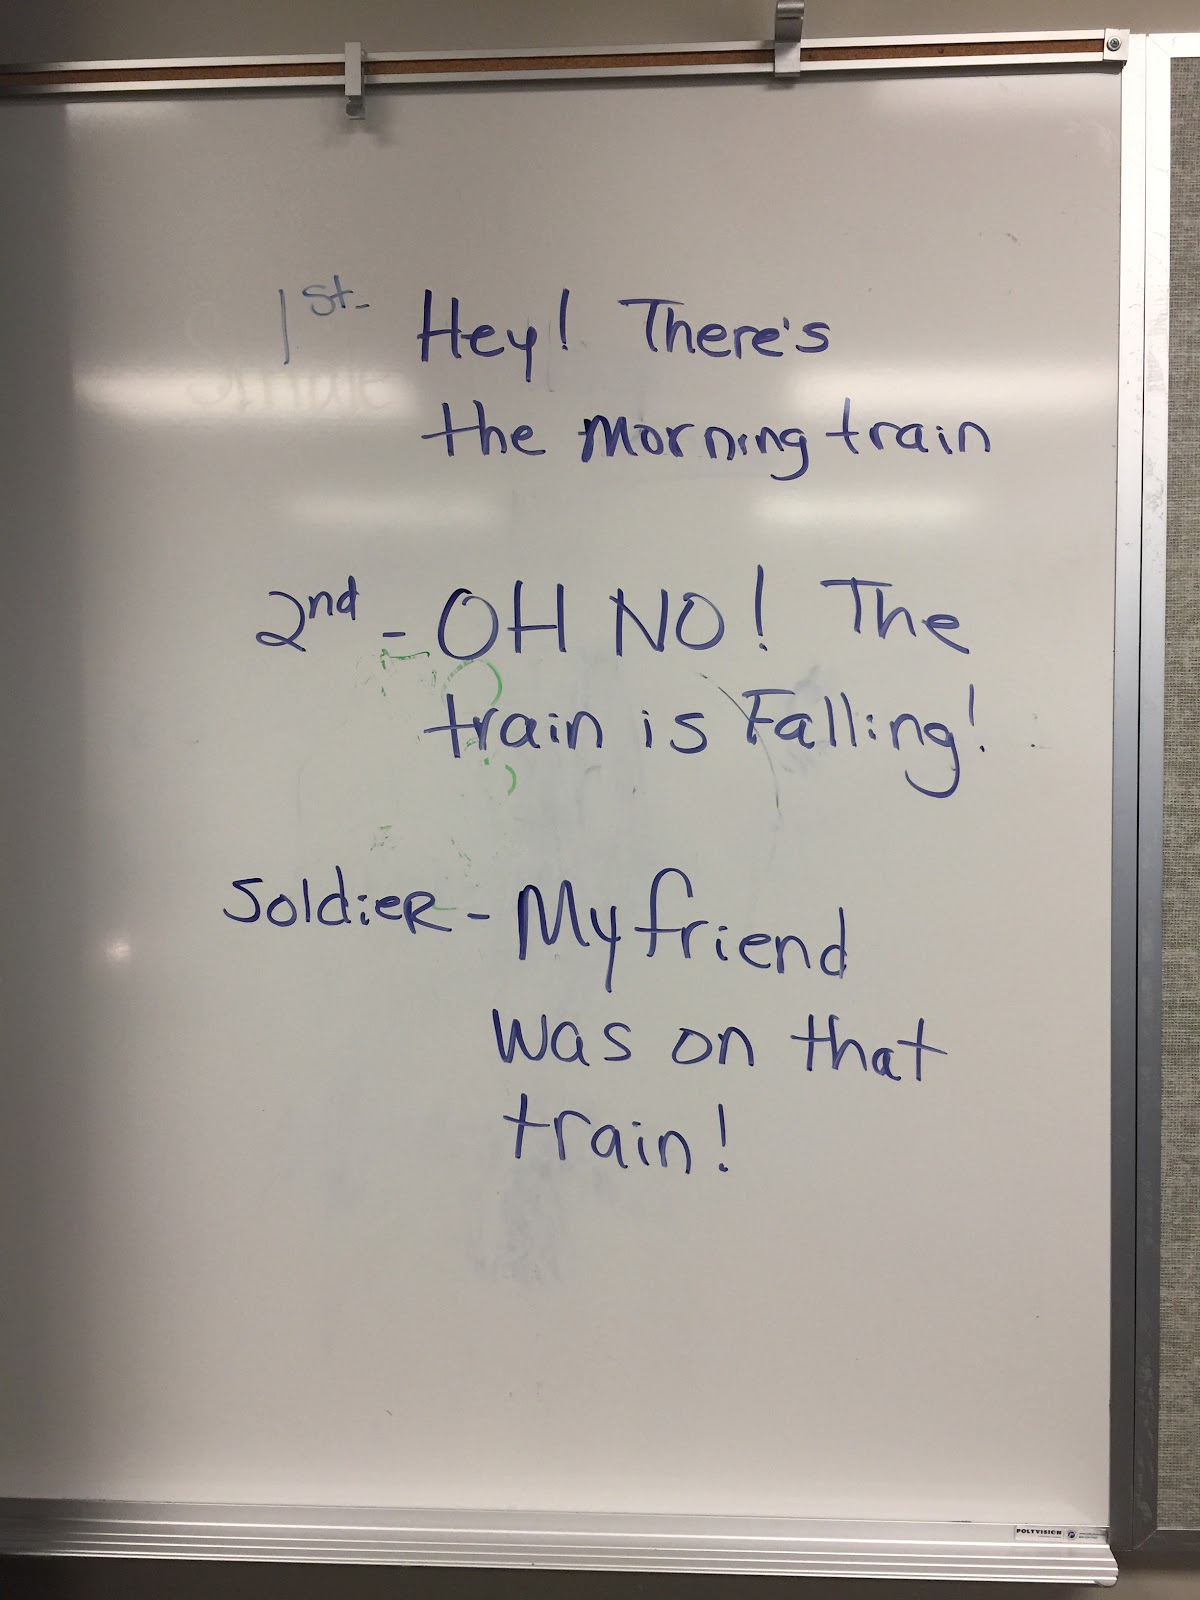 1st- Hey! There's
the morning train
2nd - OH NO! The
train is Falling!
Soldier - My friend
was on that
train!
POLYVISION